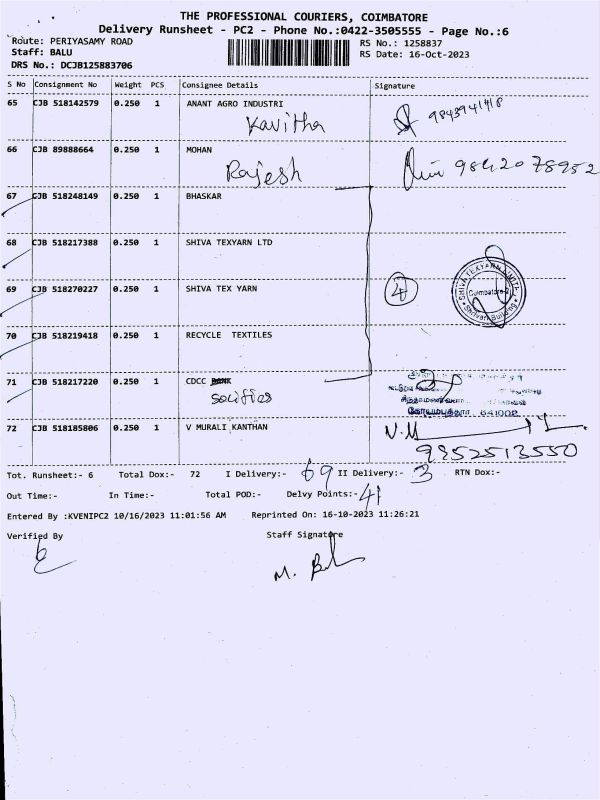 THE PROFESSIONAL COURIERS, COIMBATORE
Delivery Runsheet - PC2 - Phone No.:0422-3505555 - Page No.:6
Route: PERIYASAMY ROAD
RS No.: 1258837
Staff: BALU
RS Date: 16-Oct-2023
DRS No.: DCJB125883706
S No Consignment No Weight PCS Consignee Details Signature
65 CJB 518142579 0.250 1 ANANT AGRO INDUSTRI
Kavitha 9843941418
66 CJB 89888664 0.250 1 MOHAN
Rajesh 9842078952
67 CJB 518248149 0.250 1 BHASKAR
68 CJB 518217388 0.250 1 SHIVA TEXYARN LTD
69 CJB 518270227 0.250 1 SHIVA TEX YARN
4
SHIVA TEXYARN LIMITED
Coimbatore
Shivari Building
70 CJB 518219418 0.250 1 RECYCLE TEXTILES
71 CJB 518217220 0.250 1 CDCC BANK
கோயமுத்தூர் 641002
72 CJB 518185806 0.250 1 V MURALI KANTHAN
V.M
9352513550
Tot. Runsheet:- 6 Total Dox:- 72 I Delivery:- 69 II Delivery:- 3 RTN Dox:-
Out Time:- In Time:- Total POD:- Delvy Points:- 41
Entered By :KVENIPC2 10/16/2023 11:01:56 AM Reprinted On: 16-10-2023 11:26:21
Verified By Staff Signature
M. Bal